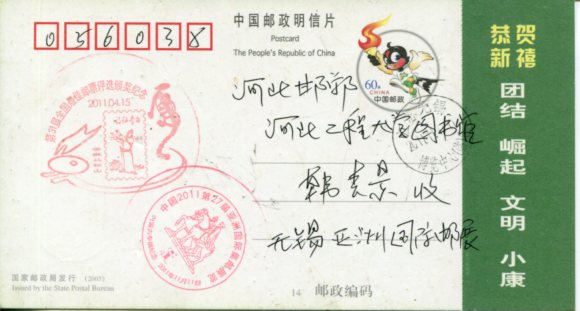 中国邮政明信片
Postcard
The People's Republic of China
056038
60分
CHINA
中国邮政
恭贺
新禧
团结 崛起 文明 小康
第31届全国最佳邮票评选颁奖纪念
2011.04.15
河北邯郸
河北工程大学图书馆
韩 景 收
无锡亚洲国际邮展
中国2011第27届亚洲国际集邮展览
国家邮政局发行 (2005)
Issued by the State Postal Bureau
14 邮政编码